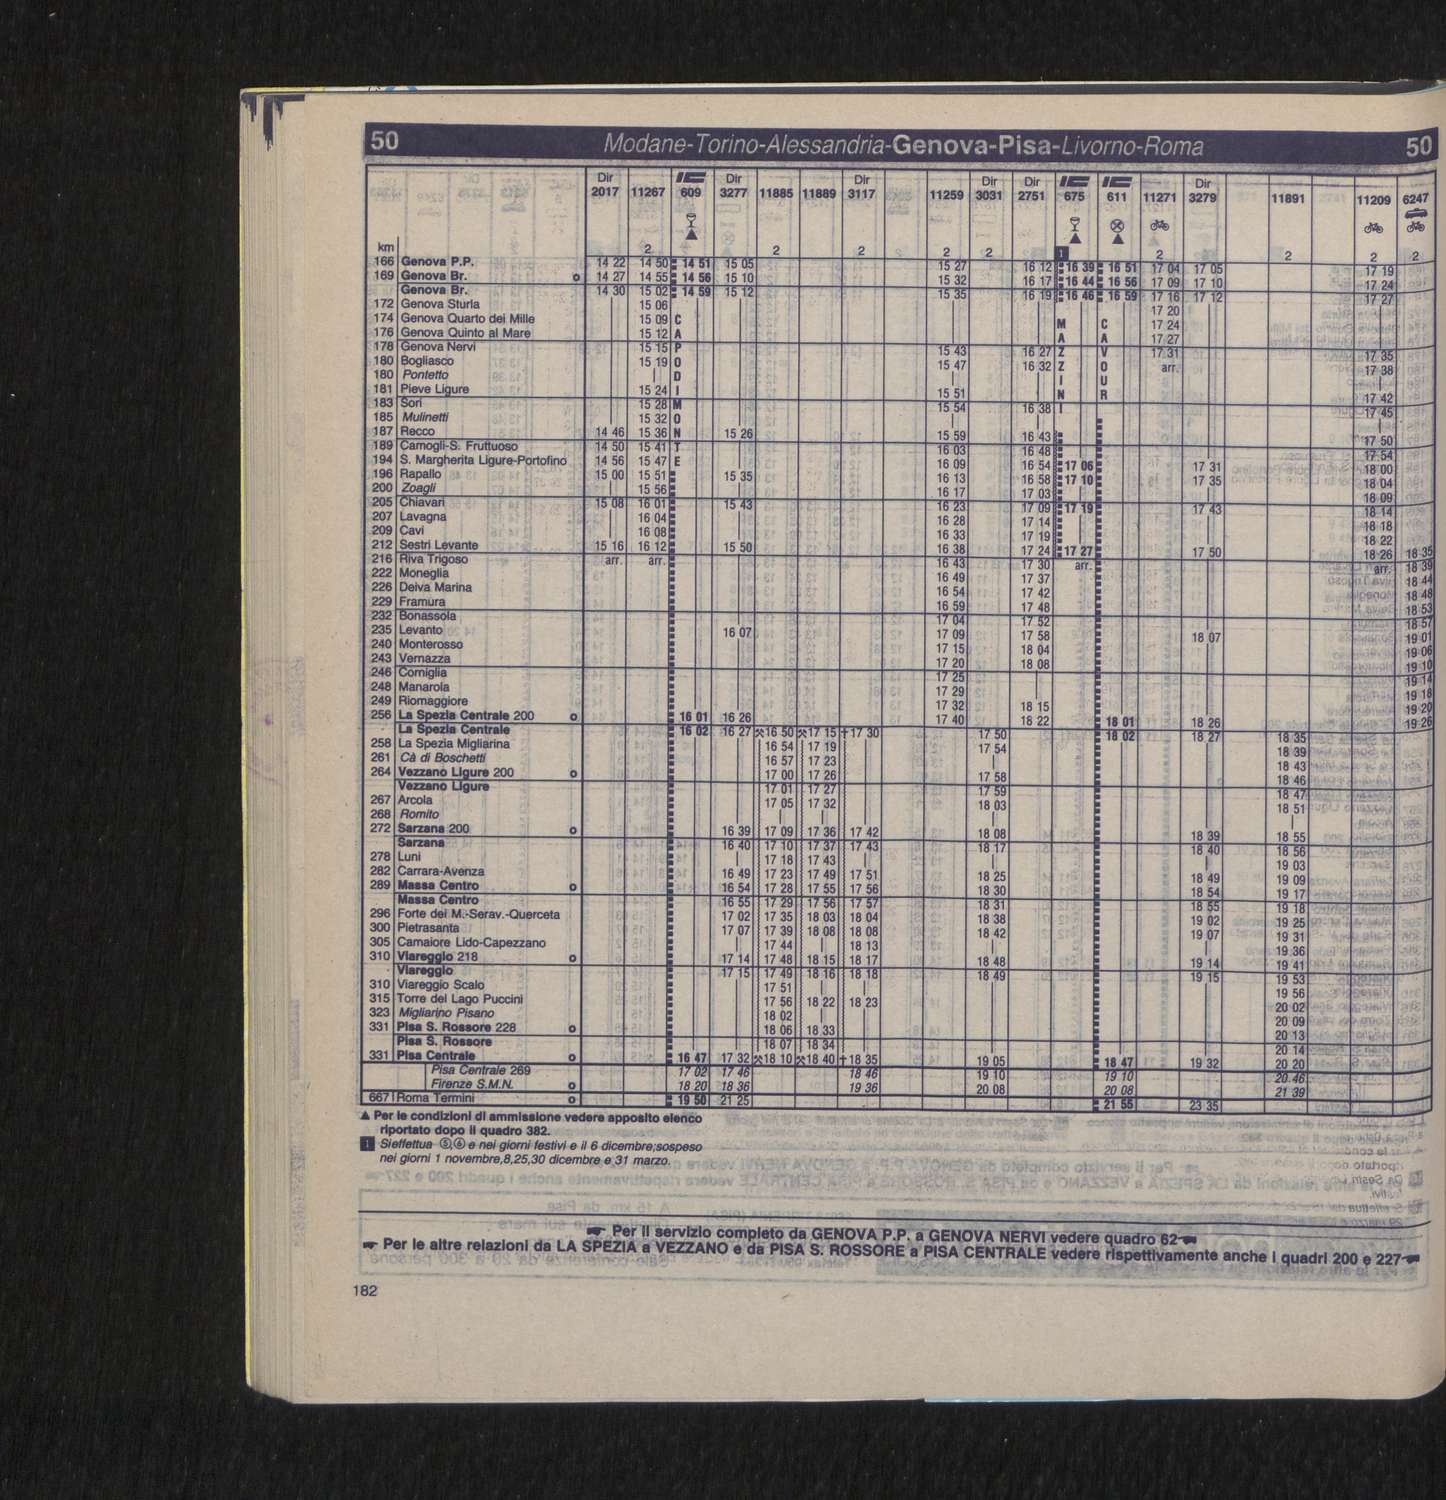 50 Modane-Torino-Alessandria-Genova-Pisa-Livorno-Roma 50
Dir 2017 11267 IC 609 Dir 3277 11885 11889 Dir 3117 11259 Dir 3031 Dir 2751 IC 675 IC 611 11271 Dir 3279 11891 11209 6247
km 2 2 2 2 2 1 2 2 2 2
166 Genova P.P. 14 22 14 50 14 51 15 05 15 27 16 12 16 39 16 51 17 04 17 05 17 19
169 Genova Br. o 14 27 14 55 14 56 15 10 15 32 16 17 16 44 16 56 17 09 17 10 17 24
Genova Br. 14 30 15 02 14 59 15 12 15 35 16 19 16 46 16 59 17 16 17 12 17 27
172 Genova Sturla 15 06 17 20
174 Genova Quarto dei Mille 15 09 C M C 17 24
176 Genova Quinto al Mare 15 12 A A A 17 27
178 Genova Nervi 15 15 P 15 43 16 27 Z V 17 31 17 35
180 Bogliasco 15 19 O 15 47 16 32 Z O arr. 17 38
180 Pontetto | D | | I U |
181 Pieve Ligure 15 24 I 15 51 | N R 17 42
183 Sori 15 28 M 15 54 16 38 I 17 45
185 Mulinetti 15 32 O | | |
187 Recco 14 46 15 36 N 15 26 15 59 16 43 17 50
189 Camogli-S. Fruttuoso 14 50 15 41 T 16 03 16 48 17 54
194 S. Margherita Ligure-Portofino 14 56 15 47 E 16 09 16 54 17 06 17 31 18 00
196 Rapallo 15 00 15 51 15 35 16 13 16 58 17 10 17 35 18 04
200 Zoagli 15 56 16 17 17 03 18 09
205 Chiavari 15 08 16 01 15 43 16 23 17 09 17 19 17 43 18 14
207 Lavagna 16 04 16 28 17 14 18 18
209 Cavi 16 08 16 33 17 19 18 22
212 Sestri Levante 15 16 16 12 15 50 16 38 17 24 17 27 17 50 18 26 18 35
216 Riva Trigoso arr. arr. 16 43 17 30 arr. arr. 18 39
222 Moneglia 16 49 17 37 18 44
226 Deiva Marina 16 54 17 42 18 48
229 Framura 16 59 17 48 18 53
232 Bonassola 17 04 17 52 18 57
235 Levanto 16 07 17 09 17 58 18 07 19 01
240 Monterosso 17 15 18 04 19 06
243 Vernazza 17 20 18 08 19 10
246 Corniglia 17 25 19 14
248 Manarola 17 29 19 18
249 Riomaggiore 17 32 18 15 19 20
256 La Spezia Centrale 200 o 16 01 16 26 17 40 18 22 18 01 18 26 19 26
La Spezia Centrale 16 02 16 27 ⚒16 50 ⚒17 15 †17 30 17 50 18 02 18 27 18 35
258 La Spezia Migliarina 16 54 17 19 17 54 18 39
261 Cà di Boschetti 16 57 17 23 | 18 43
264 Vezzano Ligure 200 o 17 00 17 26 17 58 18 46
Vezzano Ligure 17 01 17 27 17 59 18 47
267 Arcola 17 05 17 32 18 03 18 51
268 Romito | | | |
272 Sarzana 200 o 16 39 17 09 17 36 17 42 18 08 18 39 18 55
Sarzana 16 40 17 10 17 37 17 43 18 17 18 40 18 56
278 Luni | 17 18 17 43 | | | 19 03
282 Carrara-Avenza 16 49 17 23 17 49 17 51 18 25 18 49 19 09
289 Massa Centro o 16 54 17 28 17 55 17 56 18 30 18 54 19 17
Massa Centro 16 55 17 29 17 56 17 57 18 31 18 55 19 18
296 Forte dei M.-Serav.-Querceta 17 02 17 35 18 03 18 04 18 38 19 02 19 25
300 Pietrasanta 17 07 17 39 18 08 18 08 18 42 19 07 19 31
305 Camaiore Lido-Capezzano | 17 44 | 18 13 | | 19 36
310 Viareggio 218 o 17 14 17 48 18 15 18 17 18 48 19 14 19 41
Viareggio 17 15 17 49 18 16 18 18 18 49 19 15 19 53
310 Viareggio Scalo 17 51 | | 19 56
315 Torre del Lago Puccini 17 56 18 22 18 23 20 02
323 Migliarino Pisano 18 02 | | 20 09
331 Pisa S. Rossore 228 o 18 06 18 33 20 13
Pisa S. Rossore 18 07 18 34 20 14
331 Pisa Centrale o 16 47 17 32 ⚒18 10 ⚒18 40 †18 35 19 05 18 47 19 32 20 20
Pisa Centrale 269 17 02 17 46 18 46 19 10 19 10 20 46
Firenze S.M.N. o 18 20 18 36 19 36 20 08 20 08 21 39
667 Roma Termini o 19 50 21 25 21 55 23 35
▲ Per le condizioni di ammissione vedere apposito elenco
riportato dopo il quadro 382.
1 Si effettua ⑤,⑥ e nei giorni festivi e il 6 dicembre;sospeso
nei giorni 1 novembre,8,25,30 dicembre e 31 marzo.
☛ Per il servizio completo da GENOVA P.P. a GENOVA NERVI vedere quadro 62 ☚
☛ Per le altre relazioni da LA SPEZIA a VEZZANO e da PISA S. ROSSORE a PISA CENTRALE vedere rispettivamente anche i quadri 200 e 227 ☚
182